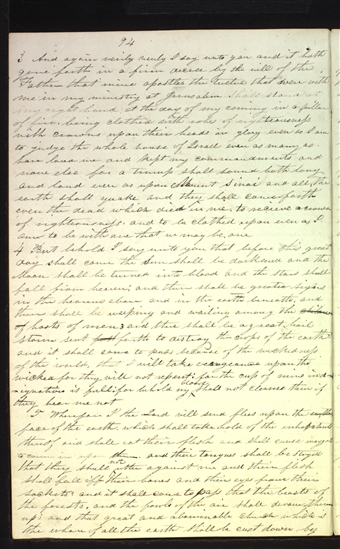 94
3 And again verily verily I say unto you and it hath
gone forth in a firm decree by the will of the
Father that mine apostles the twelve that were with
me in my ministry at Jerusalem shall stand at
my right hand at the day of my coming in a pillar
of fire being clothed with robes of righteousness
with crowns upon their heads in glory even as I am
to judge the whole house of Israel even as many as
have loved me and kept my commandments and
none else for a trump shall sound both long
and loud even as upon Mount Sinai and all the
earth shall quake and they shall come forth
even the dead which died in me to receive a crown
of righteousness and to be clothed upon even as I
am to be with me that we may be one
4 But behold I say unto you that before this great
day shall come the Sun shall be darkened and the
Moon shall be turned into blood and the stars shall
fall from heaven and there shall be greater signs
in the heavens above and in the earth beneath and
there shall be weeping and wailing among the
hosts of men & and there shall be a great hail
storm sent forth to destroy the crops of the earth
and it shall come to pass because of the wickedness
of the world that I will take vengeance upon the
wicked for they will not repent for the cup of mine ind-
ignation is full for behold my blood shall not cleanse them if
they hear me not
5 Wherefore I the Lord will send flies upon the
face of the earth which shall take hold of the inhabitants
thereof and shall eat their flesh and shall cause maggots
to come in upon them and their tongues shall be stayed
that they shall not utter against me and their flesh
shall fall off their bones and their eyes from their
sockets and it shall come to pass that the beasts of
the forests and the fowls of the air shall devour them
up and that great and abominable church which is
the whore of all the earth shall be cast down by